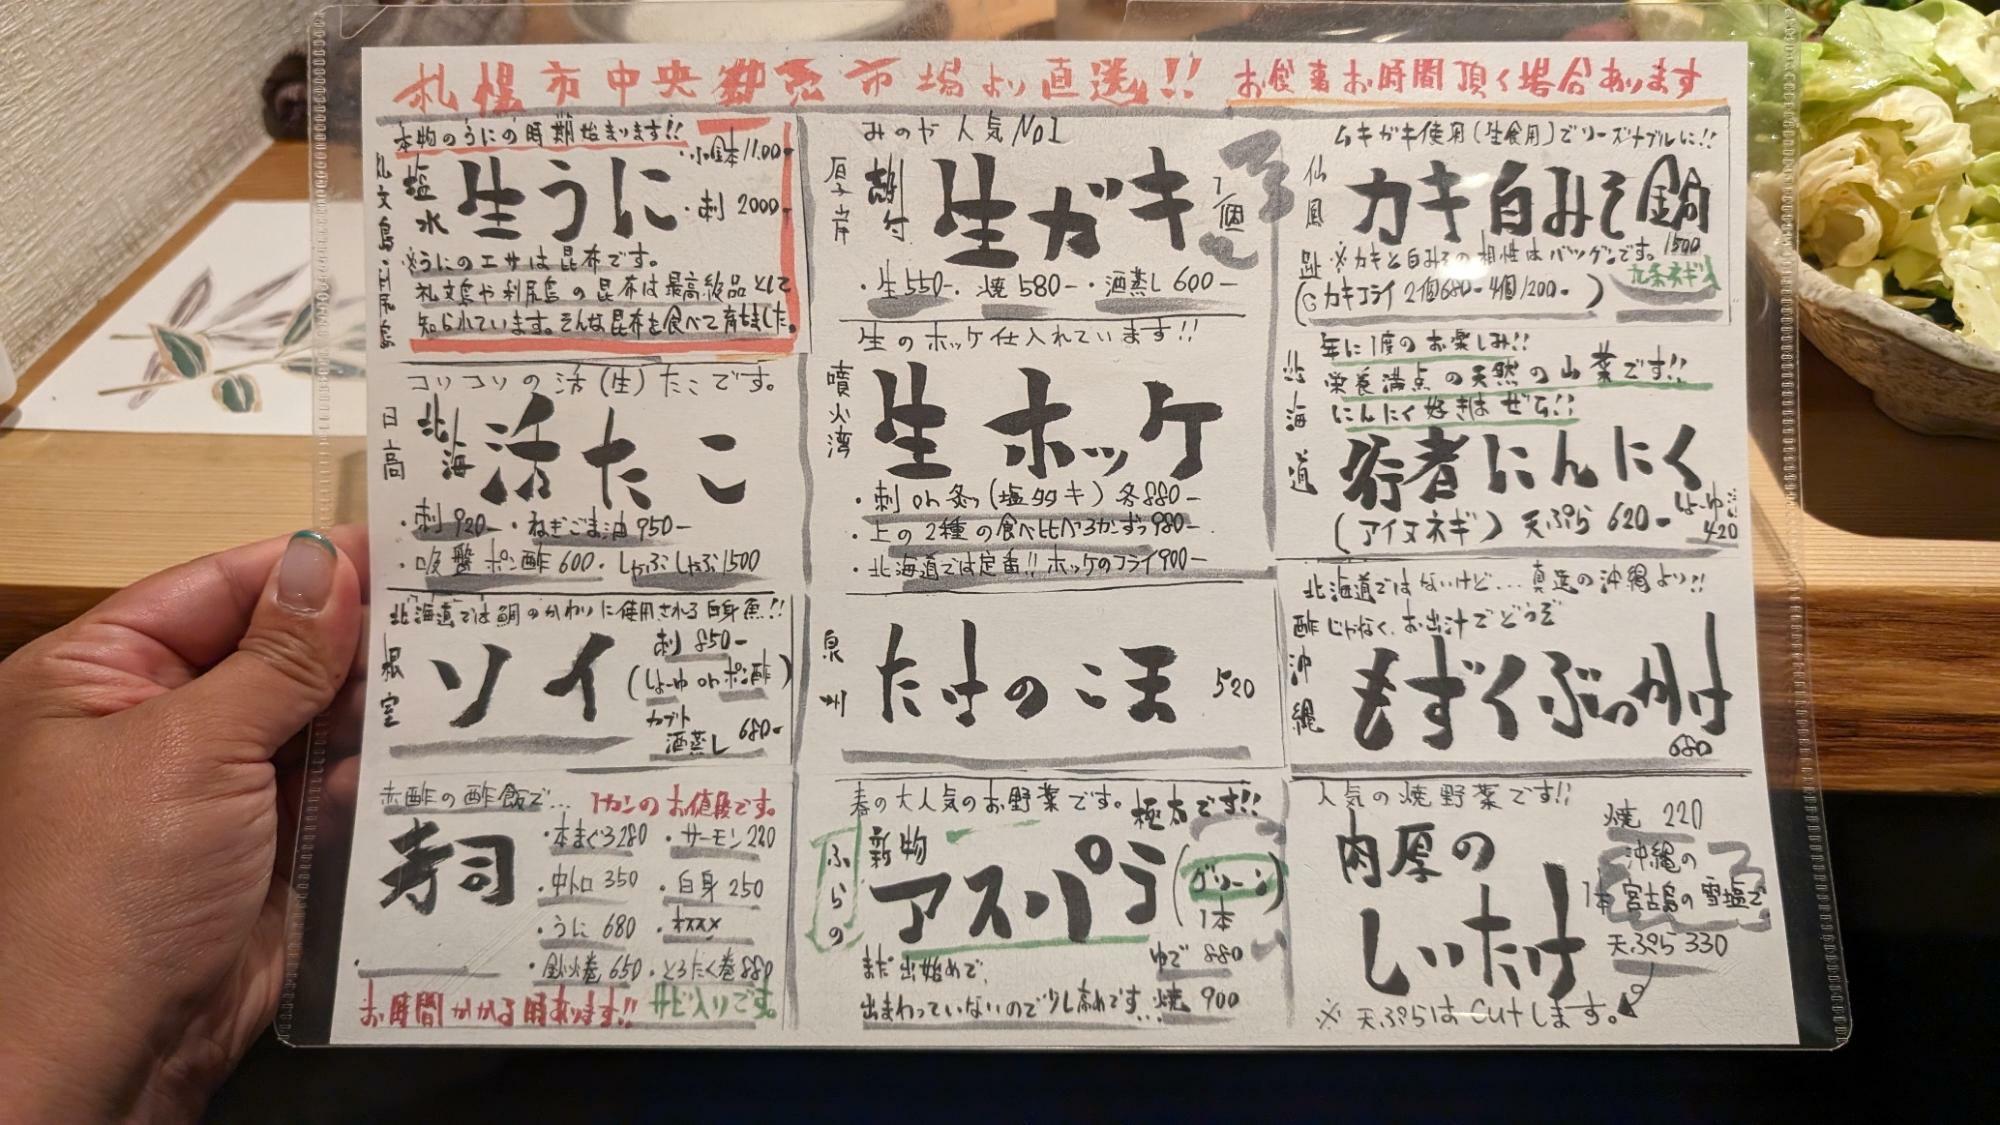 札幌市中央卸売市場より直送!!
お食事お時間頂く場合あります
本物のうにの時期始まります!!
礼文島・利尻島
塩水
生うに
・小鉢 1100-
・刺 2000-
※うにのエサは昆布です。
礼文島や利尻島の昆布は最高級品として
知られています。そんな昆布を食べて育ちました。
コリコリの活(生)たこです。
日高
北海
活たこ
・刺 920- ・ねぎごま油 950-
・吸盤ポン酢 600 ・しゃぶしゃぶ 1500
北海道では鯛のかわりに使用される白身魚!!
根室
ソイ
刺 850-
(しょーゆ or ポン酢)
カブト
酒蒸し 680-
赤酢の酢飯で…
1カンのお値段です。
寿司
・本まぐろ 280 ・サーモン 220
・中トロ 350 ・白身 250
・うに 680 ・オススメ
・鉄火巻 650 ・とろたく巻 880
お時間かかる時あります!!
サビ入りです。
みのや人気No1
厚岸
殻付
生ガキ
1個
・生 550- ・焼 580- ・酒蒸し 600-
生のホッケ仕入れています!!
噴火湾
生ホッケ
・刺 or 炙り(塩タタキ) 各880-
・上の2種の食べ比べ3かずつ 980-
・北海道では定番!! ホッケのフライ 900-
泉州
たけのこ天 520
春の大人気のお野菜です。極太です!!
ふらの
新物
アスパラ
(グリーン)
1本
ゆで 880
焼 900
まだ出始めで、
出まわっていないので少し高めです…
ムキガキ使用(生食用)でリーズナブルに!!
仙鳳趾
カキ白みそ鍋
1500
※カキと白みその相性はバツグンです。
九条ネギ入
(カキフライ 2個680- 4個1200-)
年に1度のお楽しみ!!
栄養満点の天然の山菜です!!
にんにく好きはぜひ!!
北海道
行者にんにく
(アイヌネギ) 天ぷら 620-
しょーゆ漬
420
北海道ではないけど…真逆の沖縄より!!
酢じゃなく、お出汁でどうぞ
沖縄
もずくぶっかけ
680
人気の焼野菜です!!
肉厚の
しいたけ
焼 220
沖縄の
宮古島の雪塩で
1本
天ぷら 330
※天ぷらはcutします。